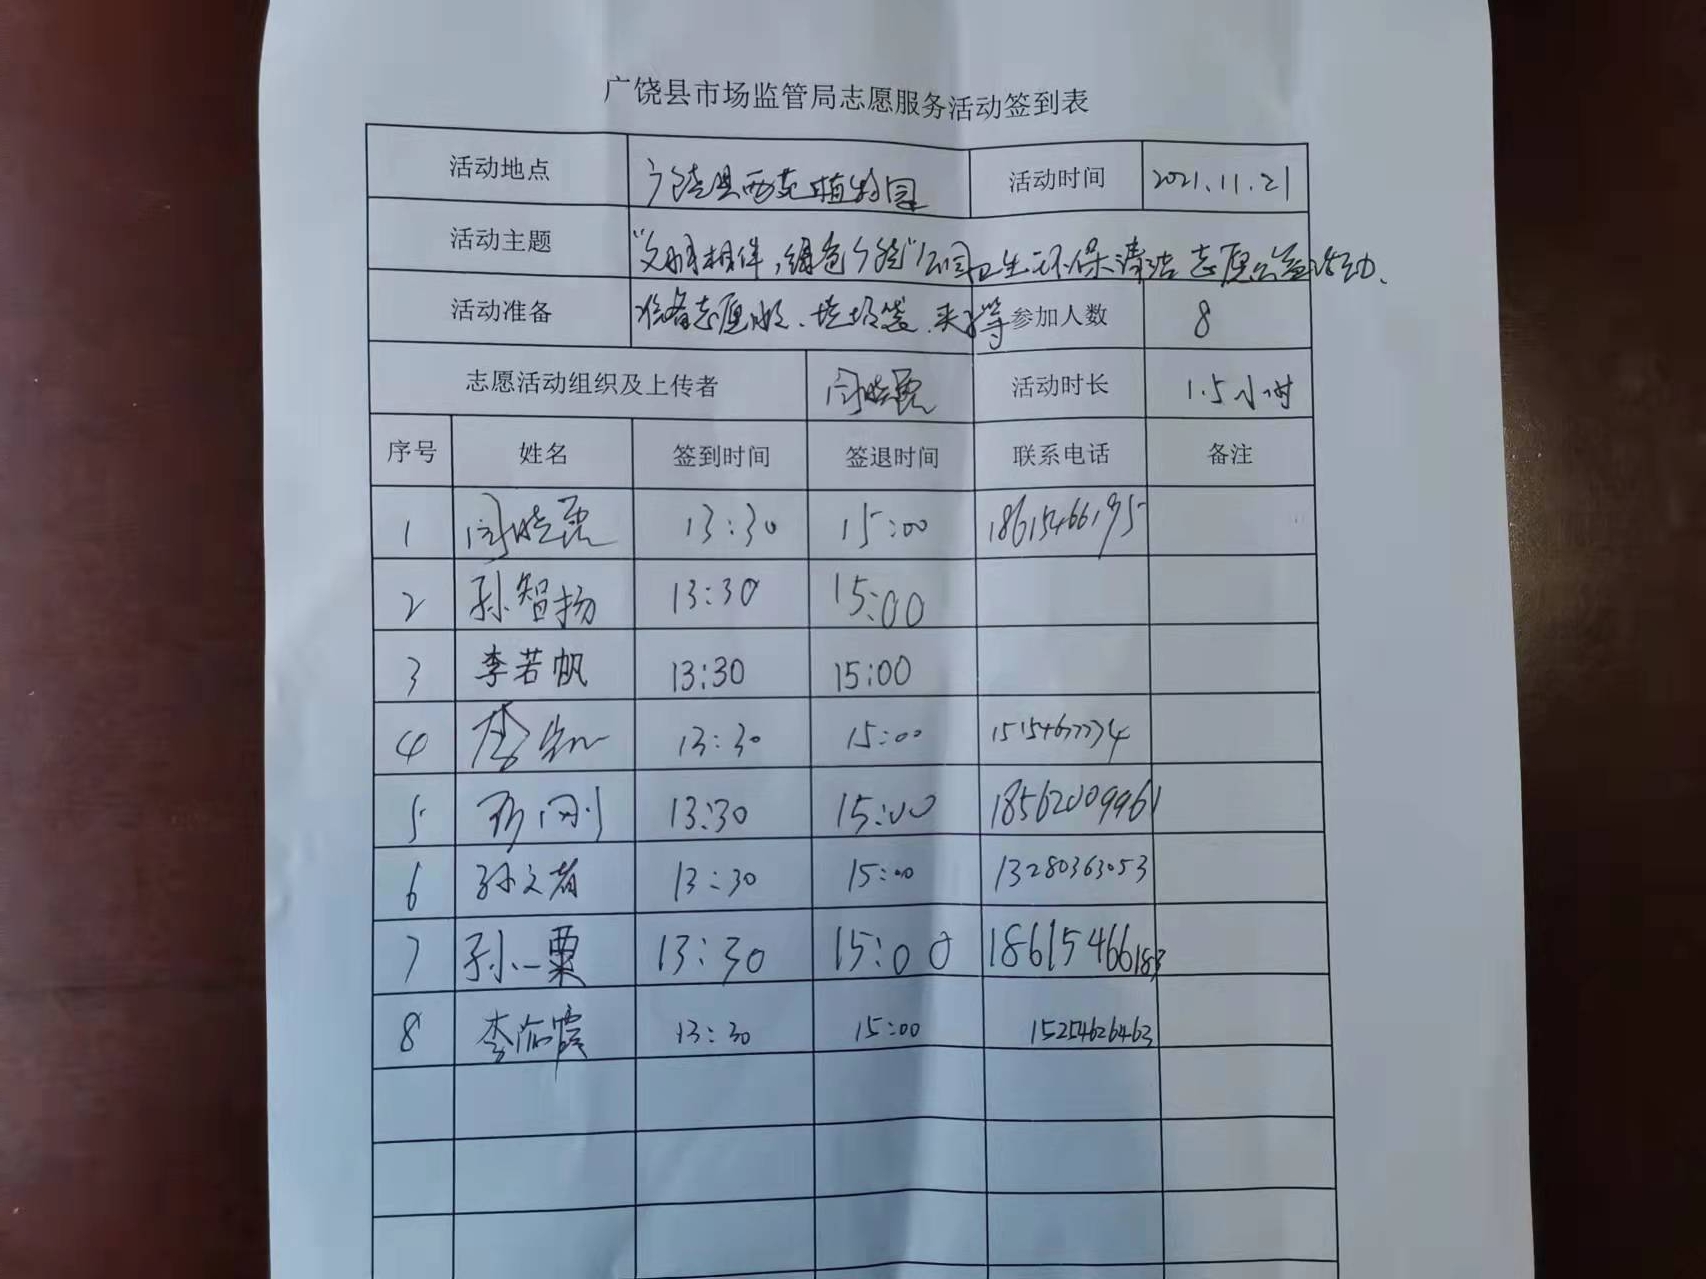 广饶县市场监管局志愿服务活动签到表
活动地点 广饶县西苑植物园 活动时间 2021.11.21
活动主题 “文明相伴,绿色广饶”公园卫生环保清洁志愿公益活动.
活动准备 准备志愿服、垃圾袋、夹子等 参加人数 8
志愿活动组织及上传者 闫晓霞 活动时长 1.5小时
序号 姓名 签到时间 签退时间 联系电话 备注
1 闫晓霞 13:30 15:00 18615466195
2 孙智扬 13:30 15:00
3 李若帆 13:30 15:00
4 李 13:30 15:00 15154677734
5 13:30 15:00 18562009961
6 孙文 13:30 15:00 13280363053
7 孙一粟 13:30 15:00 18615466183
8 李 霞 13:30 15:00 15254626463